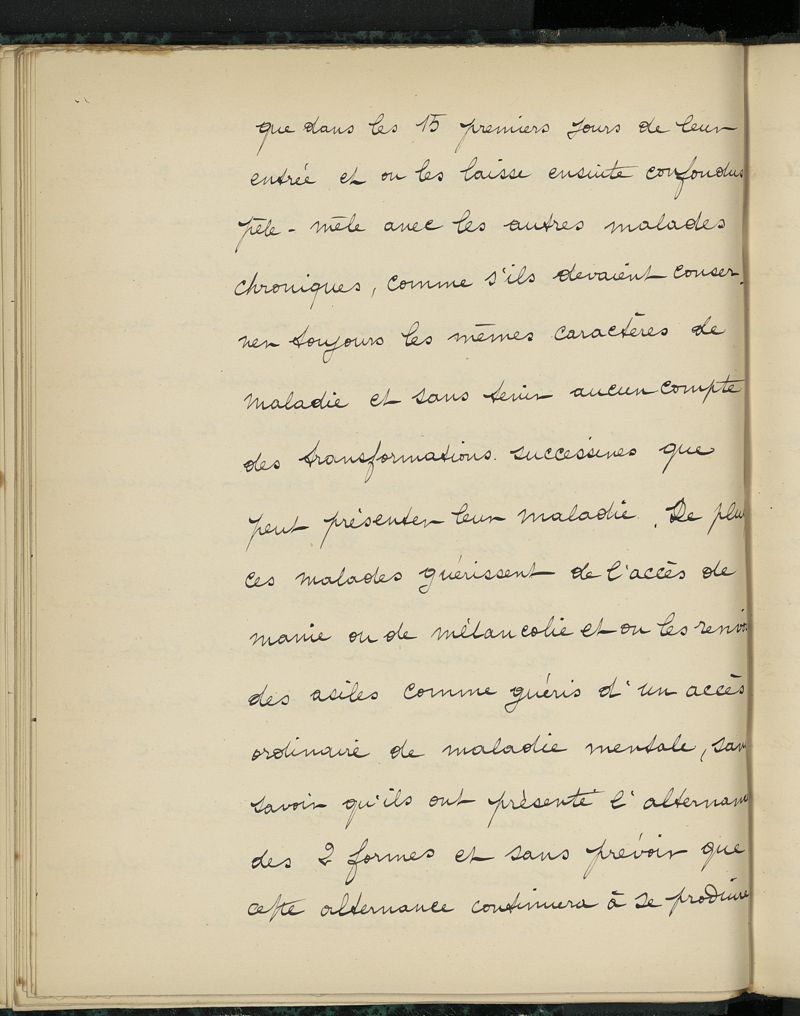 que dans les 15 premiers jours de leur
entrée et on les laisse ensuite confondus
pêle-mêle avec les autres malades
chroniques, comme s'ils devaient conser-
ver toujours les mêmes caractères de
maladie et sans tenir aucun compte
des transformations successives que
peut présenter leur maladie. De plus
ces malades guérissent de l'accès de
manie ou de mélancolie et on les renvo
des asiles comme guéris d'un accès
ordinaire de maladie mentale, san
savoir qu'ils ont présenté l'alternan
des 2 formes et sans prévoir que
cette alternance continuera à se produire